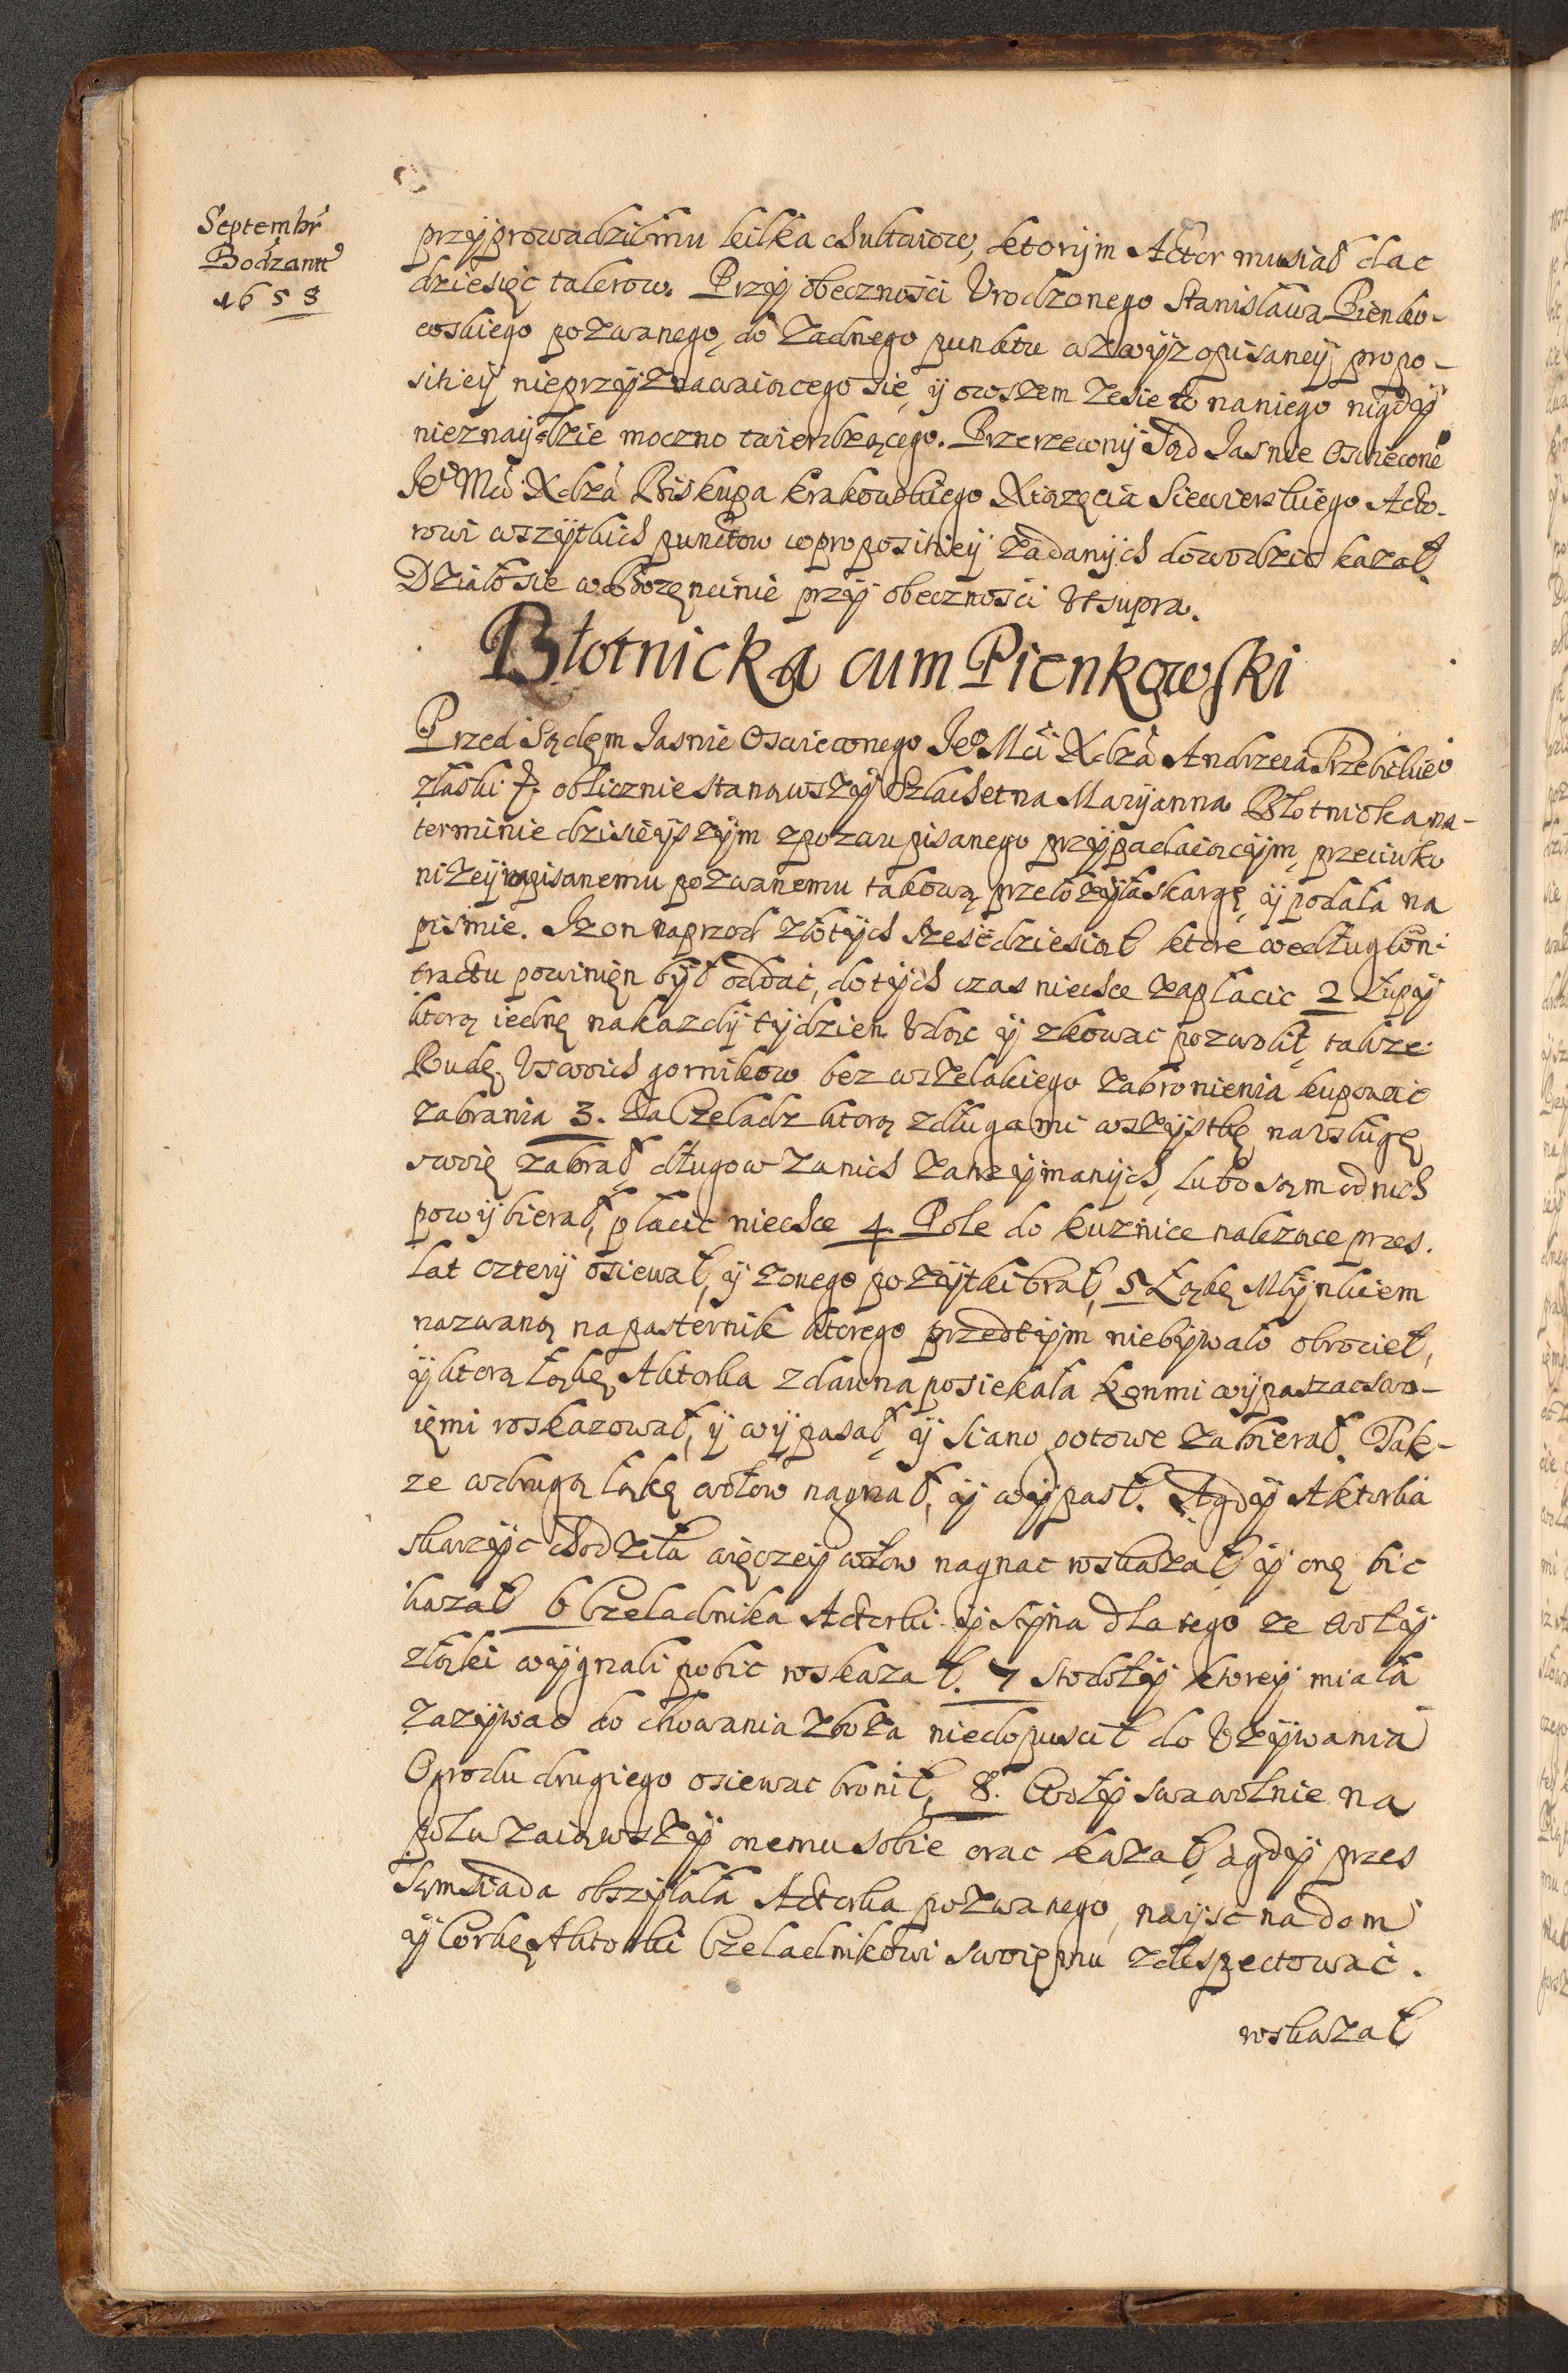 Septembr
Bodzant
1658
przyprowadził mu kilka Sułtaiow, ktorym Actor musiał dac
dziesięc talerow. Przy obecznosci Urodzonego Stanisława Pienko-
wskiego pozwanego, do zadnego punktu wzwyz opisaney propo-
sitiey nieprzyznawaiącego się, y owszem ze sie to na niego nigdy
nieznaydzie moczno twierdzącego. Przerzeczony Sąd Jasnie Oswieconé
Je͞o Mći Xdza Biskupa Krakowskiego Xiązęcia Siewierskiego Acto-
rowi wszytkich punctow w propositiey zadanych dowodzic kazał.
Działo sie w Bozęncinie przy obecznosci Ut supra.
Błotnicka cum Pienkowski
Przed Sądęm Jasnie Oswieconego Je͞o Mći Xdza Andrzeia Trzebickieo
z łaski &. oblicznie stanąwszy Szlachetna Maryanna Błotnicka na-
terminie dzisieyszym z pozwu pisanego przypadaiącym, przeciwko
nizey napisanemu pozwanemu takową przełozyła skargę, y podała na
pismie. Iz on naprzod złotych szescdziesiąt ktore według kon-
tractu powinięn był oddać, do tych czas niechce zapłacic 2 Łupy
ktorą iednę na kazdy tydzien Udac y zkowac pozwolił, takze
Rudę, U swoich gornikow bez wszelakiego zabronienia kupowac
zabrania 3. Za Czeladz ktorą z długami wszystkę na usługę
swoię zabrał, długow za nich zatrzymanych, lubo sąm od nich
powybierał, płacic niechce 4. Pole do kuznice nalezące przes.
lat cztery osiewał, y z onego pozytki brał, 5 Łąkę Młynkiem
nazwaną na pasternik ktorego przed tym niebywało obrocieł,
y ktorą łąkę Aktorka z dawna posiekała końmi wypaszac swo-
ięmi roskazował, y wypasał, y siano gotowe zabierał. Tak-
ze w drugą łąkę wołow nagnał, y wypasł. A gdy Aktorka
skarzyc chodziła więczey wołow nagnac roskazał, y onę bic
kazał 6 Czeladnika Actorki y Syna dla tego ze woły
z łąki wygnali pobic roskazał. 7 Stodoły ktorey miała
zazywac do chowania zboza niedopuscił do Uzywania
Ogrodu drugiego osiewac bronił, 8. Woły swawolnie na
polu zaiąwszy onemu sobie orac kazał, a gdy przes
Sąmsiada obszyłała Actorka pozwanego, nayść na dom
y Corkę Aktorki Czeladnikowi swoięmu zdespectować.
roskazał